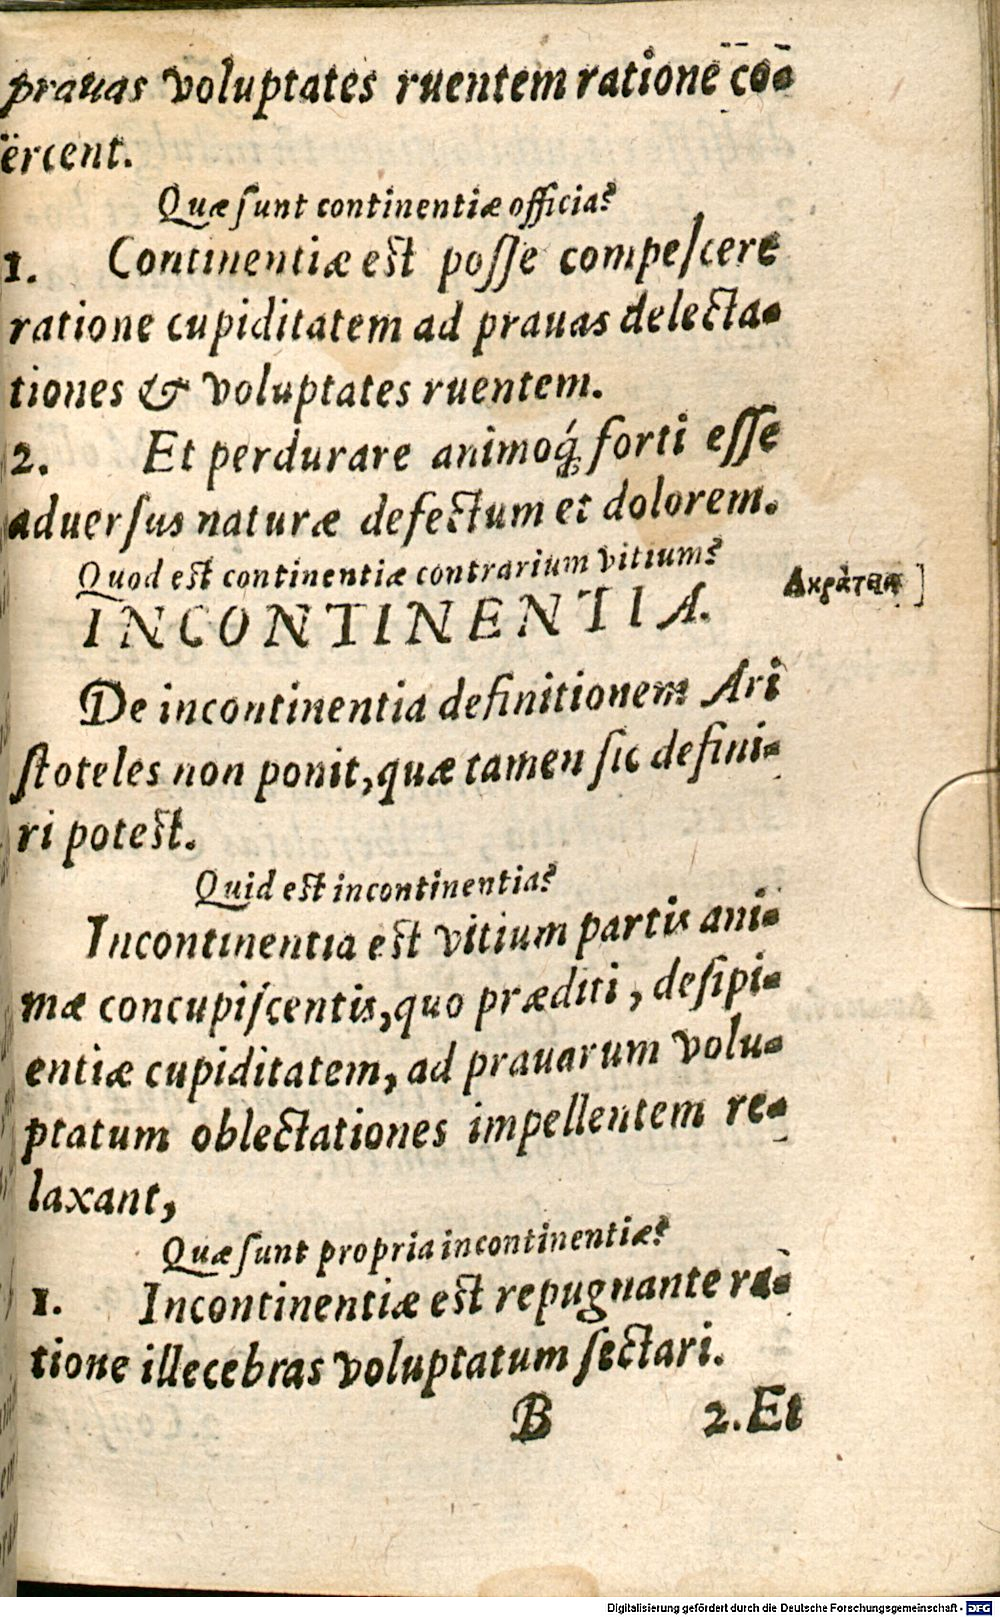 prauas voluptates ruentem ratione co-
ërcent.
Quæ sunt continentiæ officia?
1. Continentiæ est posse compeſcere
ratione cupiditatem ad prauas delecta-
tiones & voluptates ruentem.
2. Et perdurare animoq́; forti eſſe
aduerſus naturæ defectum et dolorem.
Quod est continentiæ contrarium vitium?
Ἀκράτεια]
INCONTINENTIA.
De incontinentia definitionem Ari
ſtoteles non ponit, quæ tamen ſic defini-
ri potest.
Quid est incontinentia?
Incontinentia est vitium partis ani-
mæ concupiſcentis, quo præditi, deſipi-
entiæ cupiditatem, ad prauarum volu-
ptatum oblectationes impellentem re-
laxant,
Quæ ſunt propria incontinentiæ?
1. Incontinentiæ est repugnante ra-
tione illecebras voluptatum ſectari.
B 2. Et
Digitalisierung gefördert durch die Deutsche Forschungsgemeinschaft - DFG